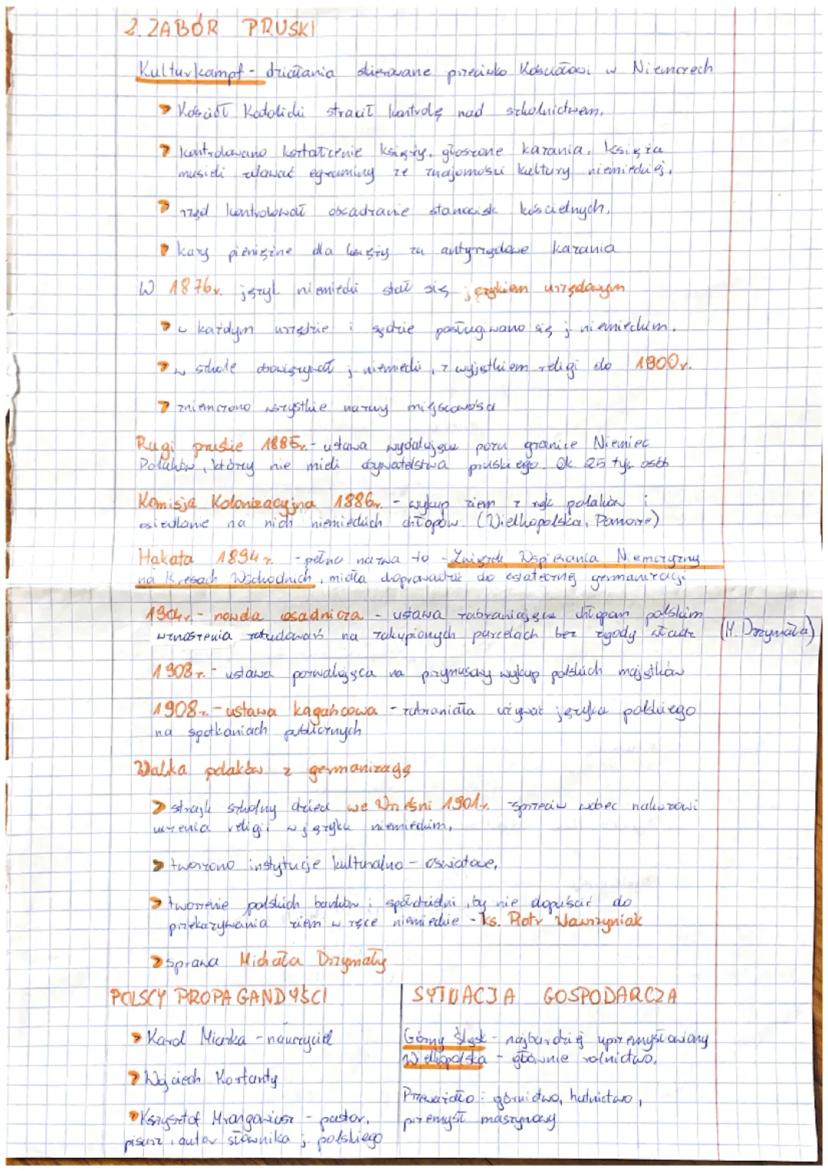 2. ZABÓR PRUSKI
Kulturkampf - działania skierowane przeciwko Kościołowi w Niemczech
Kościół Katolicki stracił kontrolę nad szkolnictwem.
kontrolowano kształcenie księży, głoszone kazania, księża
musieli zdawać egzaminy ze znajomości kultury niemieckiej.
rząd kontrolował obsadzanie stanowisk kościelnych.
kary pieniężne dla księży za antyrządowe kazania
W 1876r. język niemiecki stał się językiem urzędowym
w każdym urzędzie i sądzie posługiwano się j niemieckim.
w szkole obowiązywał j niemiecki, z wyjątkiem religi do 1900r.
zniemczono wszystkie nazwy miejscowości
Rugi pruskie 1885r. - ustawa wydalająca poza granice Niemiec
Polaków, którzy nie mieli obywatelstwa pruskiego. Ok 25 tyś osób
Komisja Kolonizacyjna 1886r. - wykup ziem z rąk polaków i
osiedlanie na nich niemieckich chłopów. (Wielkopolska, Pomorze)
Hakata 1894r. - pełna nazwa to - Związek Wspierania Niemczyzny
na Kresach Wschodnich, miała doprowadzić do ostatecznej germanizacji
1904r. - nowela osadnicza - ustawa zabraniająca chłopom polskim
wznoszenia zabudowań na zakupionych parcelach bez zgody władz (M. Drzymała)
1908r. - ustawa pozwalająca na przymusowy wykup polskich majątków
1908r. - ustawa kagańcowa - zabraniała używać języka polskiego
na spotkaniach publicznych
Walka polaków z germanizacją
strajk szkolny dzieci we Wrześni 1901r. - sprzeciw wobec nakazowi
uczenia religi w języku niemieckim,
tworzono instytucje kulturalno - oświatowe,
tworzenie polskich banków i spółdzielni, by nie dopuścić do
przekazywania ziem w ręce niemieckie - ks. Piotr Wawrzyniak
sprawa Michała Drzymały
POLSCY PROPAGANDYŚCI
Karol Miarka - nauczyciel
Wojciech Korfanty
Krzysztof Mrongowiusz - pastor,
pisarz, autor słownika j polskiego
SYTUACJA GOSPODARCZA
Górny Śląsk - najbardziej uprzemysłowiony
Wielkopolska - głównie rolnictwo.
Przeważało: górnictwo, hutnictwo,
przemysł maszynowy